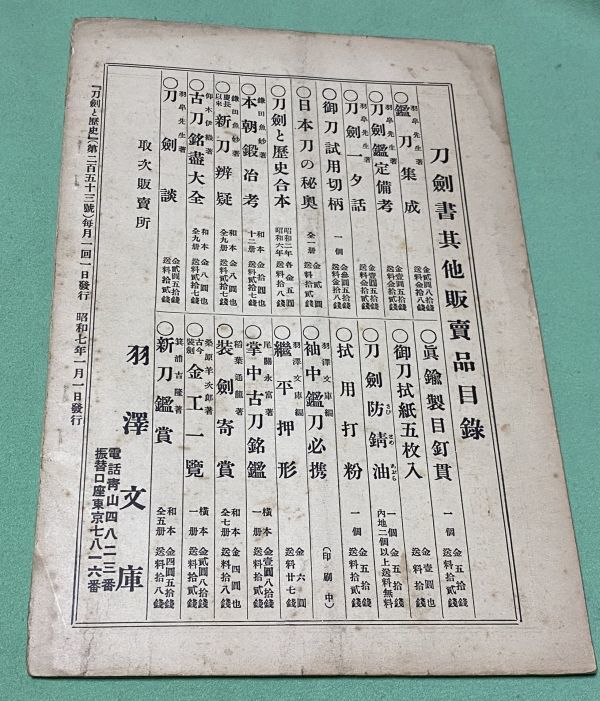 刀劍書其他販賣品目錄
羽皐先生著
○鑑刀集成
金貳圓五拾錢
送料金拾貳錢
羽皐先生著
○刀劍鑑定備考
金壹圓五拾錢
送料金拾貳錢
羽皐先生著
○刀劍一夕話
金壹圓五拾錢
送料金拾貳錢
○御刀試用切柄
一個
金參圓五拾錢
送料金拾八錢
○日本刀の秘奧
全一册
金貳圓
送料拾貳錢
○刀劍と歷史合本
昭和二年
昭和六年
各金五圓
送料拾八錢
鎌田魚妙著
○本朝鍛冶考
和本
十二册
金拾四圓也
送料貳拾七錢
鎌田魚妙著
○慶長以來新刀辨疑
和本
全九册
金八圓也
送料貳拾七錢
仰木伊織著
○古刀銘盡大全
和本
全九册
金八圓也
送料貳拾七錢
羽皐先生著
○刀劍談
金貳圓五拾錢
送料拾貳錢
○眞鍮製目釘貫
一個
金五拾錢
送料拾貳錢
○御刀拭紙五枚入
金壹圓也
送料拾錢
○刀劍防錆油
さび
どめ
あぶら
一個
金五拾錢
內地二個以上送料無料
○拭用打粉
一個
金五拾錢
送料拾貳錢
羽澤文庫編
○袖中鑑刀必携
(印刷中)
羽澤文庫編
○繼平押形
金六圓
送料廿七錢
尾關永富著
○掌中古刀銘鑑
橫本
一册
金壹圓八拾錢
送料拾貳錢
稻葉通龍著
○裝劍寄賞
和本
全七册
金四圓也
送料拾八錢
桑原羊次郎著
○古今裝劍金工一覽
橫本
一册
金貳圓八拾錢
送料拾貳錢
箕浦吉隆著
○新刀鑑賞
和本
全五册
金四圓五拾錢
送料拾八錢
取次販賣所
羽澤文庫
電話靑山四八二三番
振替口座東京七八一六番
『刀劍と歷史』(第二百五十三號)每月一回一日發行 昭和七年一月一日發行